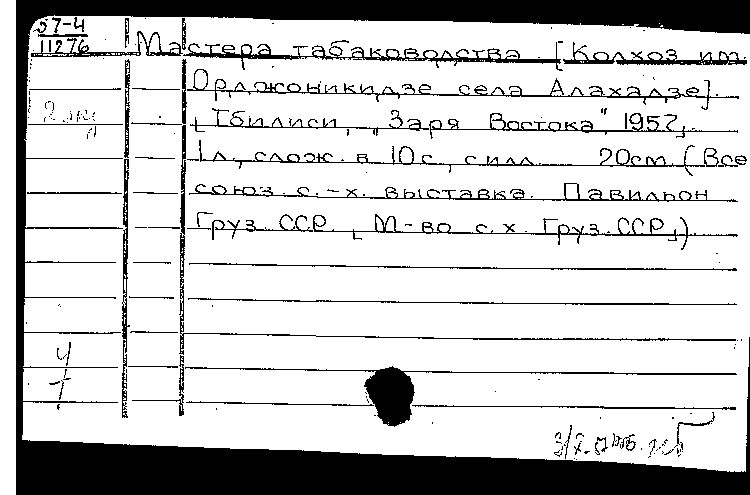 57-4
11276
Мастера табаководства [Колхоз им.
Орджоникидзе села Алахадзе].
2 экз
[Тбилиси, "Заря Востока", 1957].
1 л., слож. в 10 с., с илл. 20см. (Все
союз. с.-х. выставка. Павильон
Груз. ССР. [М-во с.х. Груз. ССР]).